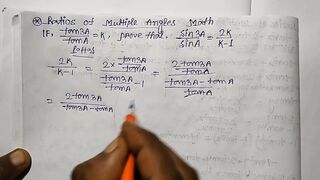 Ratios of Multiple Angles Math
If, tan3A/tanA = K, prove that, sin3A/sinA = 2K/K-1
L.H.S
2K/K-1 = 2 × tan3A/tanA / tan3A/tanA - 1 = 2tan3A/tanA / tan3A - tanA/tanA
= 2tan3A/tan3A - tanA